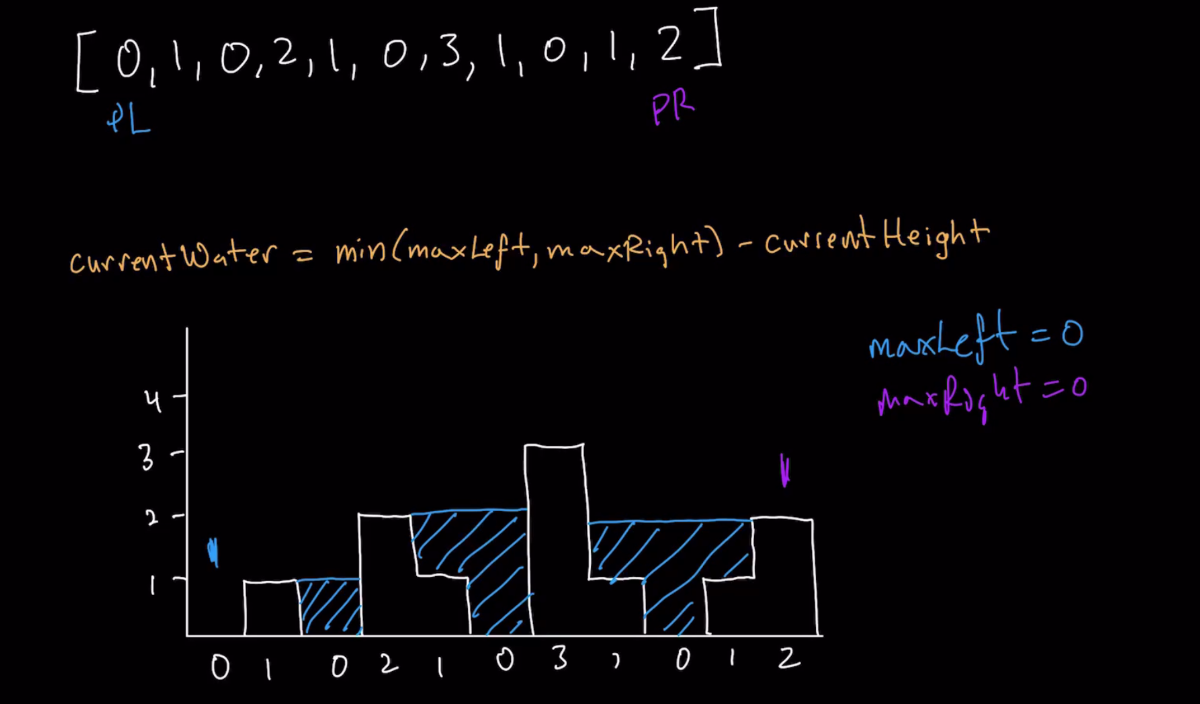 [0,1,0,2,1,0,3,1,0,1,2]
PL PR
currentWater = min(maxLeft, maxRight) - currentHeight
maxLeft = 0
maxRight = 0
4
3
2
1
0 1 0 2 1 0 3 0 1 2